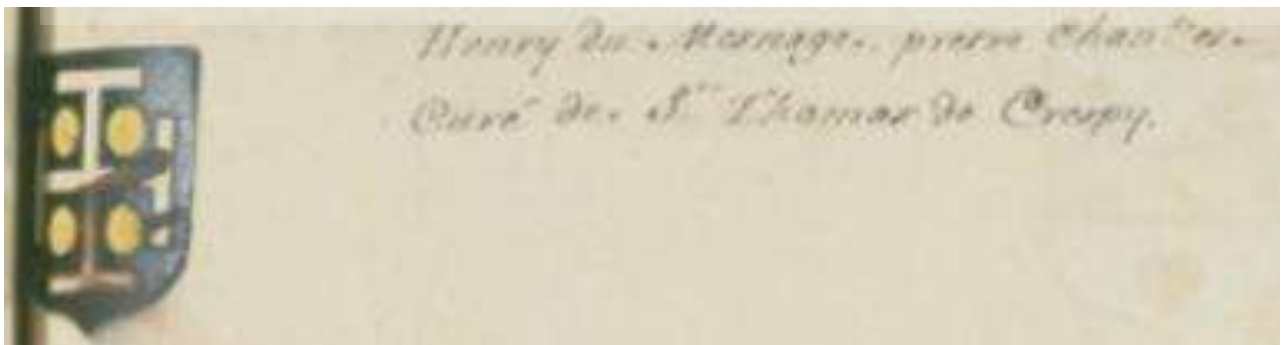 Henry du Mesnage. prestre Chan^ne et.
Curé de. S^t Thomas de Crespy.